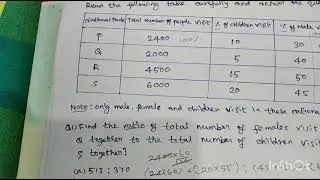 Read the following table carefully and answer the que
National Park Total number of people visit % of children visit % of male v
P 2400 100% 10 30
Q 2000 5 40
R 4500 15 50
S 6000 20 45
Note: only male, female and children visit in these national
Q1) Find the ratio of total number of females visit
Q together to the total number of children visit
S together?
2400×60
100
(a) 513:370 (24×60)+(20×55):(4
InShot